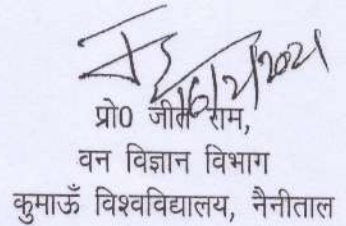 16/2/2021
प्रो0 जीत राम,
वन विज्ञान विभाग
कुमाऊँ विश्वविद्यालय, नैनीताल